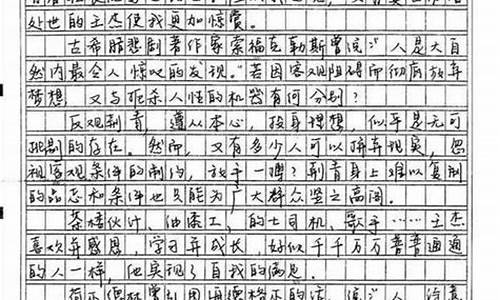 处世的王杰使我更加惊赏。
古希腊悲剧著作家索福克勒斯曾说："人是大自
然内最令人惊叹的发现。"若因客观阻碍而彻底放弃
梦想，又与扼杀人性的机器有何分别？
反观荆青，遵从本心，投身理想，似乎是无可
挑剔的存在。然而，又有多少人可以摒弃现实，忽
视客观条件的制约，放手一搏？荆青身上难以复制
的品态和条件也只能为广大群众竖之高阁。
茶楼伙计、油漆工、的士司机、歌手……王杰
喜欢并感恩，学习并成长，好似千千万万普普通通
的人一样，他实现了自我的满足。